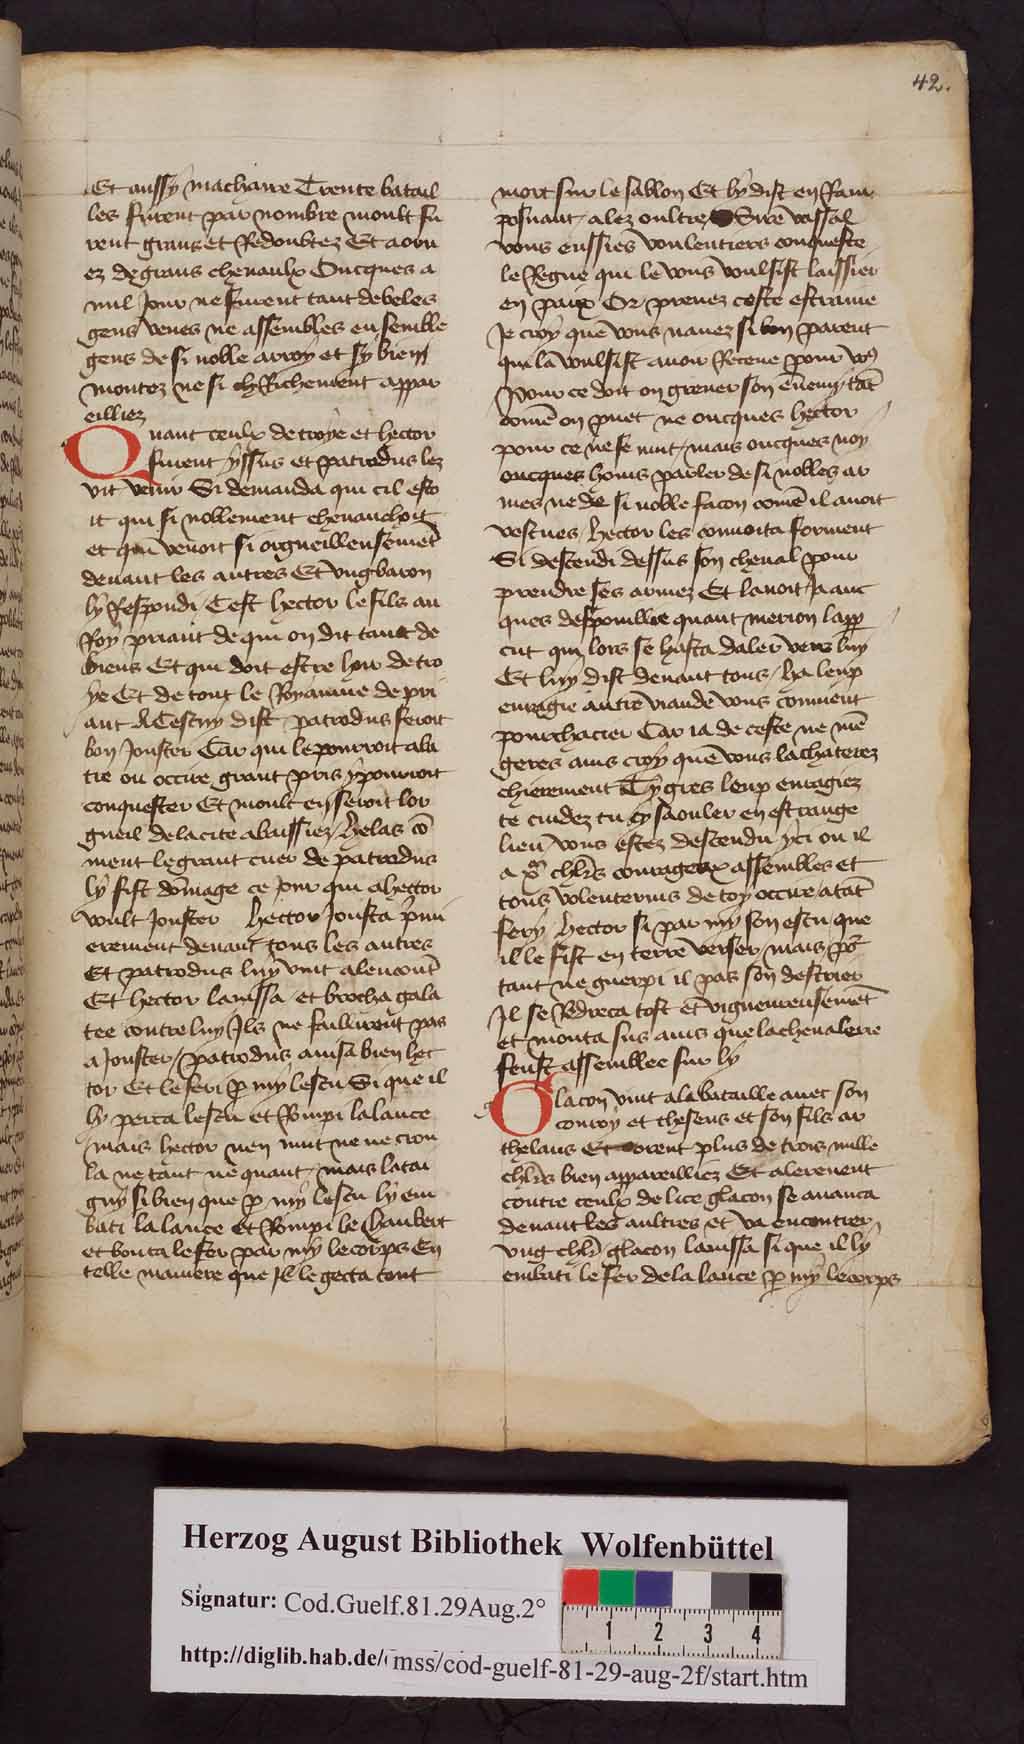 42.
Et aussy machaire Trente batail
les furent par nombre moult fu
rent grans et Redoubtez Et aoru
ez de grans cheuaulx Oncques a
nul Jour ne furent tant de beles
gens venes ne assembles ensemble
gens de si noble arroy et sy bien
montez ne si Richement appar
eilliez
Quant ceulx de troye et hector
furent yssus et patrodus lez
vit venir Si demanda qui cil esto
it qui si noblement cheuauchoit
et qui venoit si orgueilleusemēt
deuant les autres Et vng baron
ly Respondi Cest hector le fils au
Roy priant de qui on dit tant de
biens Et qui doit estre hoir de tro
ye Et de tout le Royaume de pri
ant A Cestuy dist patrodus feroit
bon Jouster Car qui le pourroit aba
tre ou occire grant pris y pourroit
conquester Et moult en seroit lor
gueil de la cite abaissiez helas cō
ment le grant cuer de patrodus
ly fist dōmage ce jour qui a hector
voult Jouster hector Jousta p̄mi
erement deuant tous les autres
Et patrodus luy vint alencont̄
Et hector laissa et brocha gala
tee contre luy Ils ne faillirent pas
a Jouster / patrodus auisa bien hec
tor Et le feri p my lescu Si que il
ly perca lescu et Rompi la lance
mais hector nen mut ne ne crou
la ne tant ne quant / mais latai
gny si bien que p my lescu ly em
bati la lance et Rompi le haubert
et bouta le fer par my le corps En
telle maniere que Il le gecta tout
mort sur le sablon Et ly dist en Ram
posnant / alez oultre Sire vassal
vous eussies voulentiers conqueste
le Regne qui le vous voulsist laissier
en paix Or prenez ceste estraine
Je croy que vous nauez si bon parent
qui la voulsist auoir Receue pour vo9
Pour ce doit on greuer son enemy tāt
comē on puet ne oncques hector
pour ce ne se mut / mais oncques noy
oncques homs parler de si nobles ar
mes ne de si noble facon comē il auoit
vestues / hector les conuoita forment
Si descendi dessus son cheual pour
prendre ses armez Et lauoit Ja auc
ques despouillie quant merion lapp
cut qui lors se hasta daler vers luy
Et luy dist deuant tous / ha leup
enragie autre viande vous conuient
pourchacier Car ia de ceste ne mē
geres ains croy que vous lachaterez
chierement Tygres leup enragiez
te cuidez tu cy saouler en estrange
lieu vous estez descendu yci ou il
a chlrs courageux assembles et
tous volenterius de toy occire atāt
fery hector si par my son escu que
il le fist en terre verser mais po'
tant ne guerpi il pas son destrier
Il se Redreca tost et viguereusemēt
et monta sus ains que la cheualerie
feust assemblee sur ly
Glacon vint a la bataille auec son
conroy et theseus et son fils ar
thelaus Et orent plus de trois mille
chlrs bien appareilliez Et alerenent
contre ceulx de lice glacon se auanca
deuant les aultres et va encontrer
vng chlr glacon laissa si que il ly
embati le fer de la lance p my le corps
Herzog August Bibliothek Wolfenbüttel
Signatur: Cod.Guelf.81.29Aug.2°
http://diglib.hab.de/mss/cod-guelf-81-29-aug-2f/start.htm
1 2 3 4